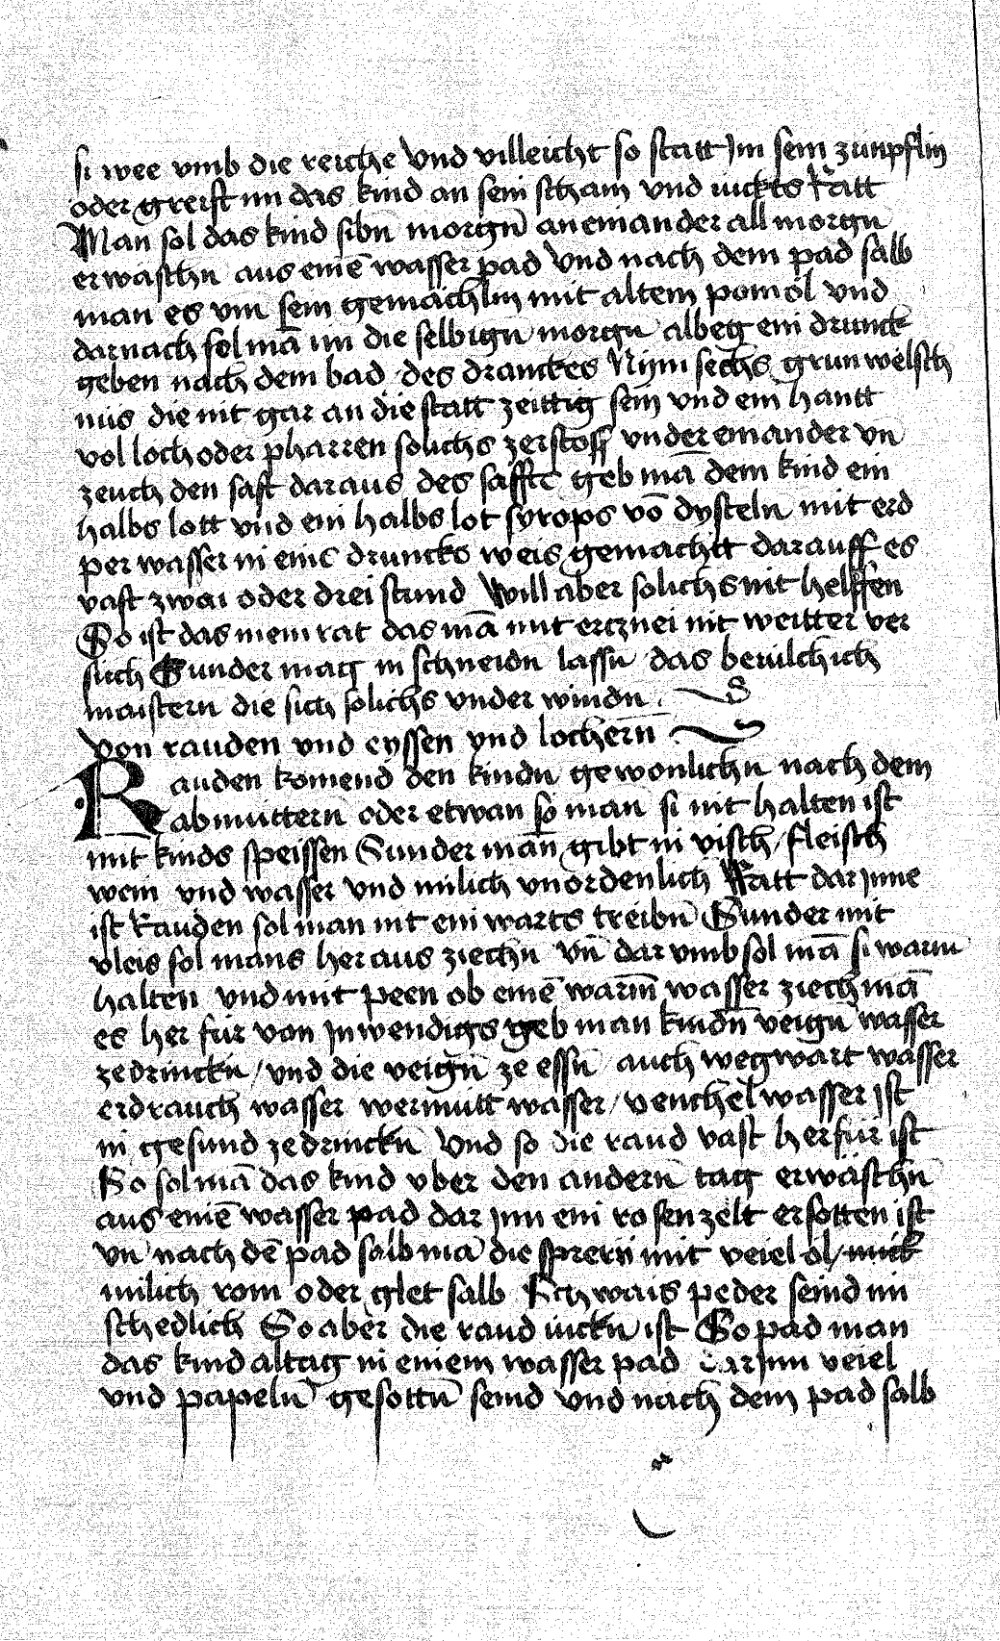 si wee vmb die reiche Vnd villeicht so statt Im sein zunpflin
oder greift im das kind an sein scham vnd iuckts Ratt
Man sol das kind sibn̄ morgn̄ aneinander all morgn
erwaschn aus einē wasser pad Vnd nach dem pad salb
man es vm sein gemachlin mit altem pomöl vnd
darnach sol mā im die selbign morgn albeg ein drunck
geben nach dem bad des dranckes Nym sechs grun welsch
nus die nit gar an die statt zeittig sein vnd ein hantt
vol loch oder pharren solichs zerstoss vnder einander vn̄
zeuch den saft daraus des saffts geb mā dem kind ein
halbs lott vnd ein halbs lot syrops vō dysteln mit erd
per wasser in eins druncks weis gemachtt darauff es
vast zwai oder drei stund Will aber solichs nit helffen
So ist das mein rat das mā mit ercznei nit weitter ver
such Sunder mag in schneidn lassn das beuilch ich
maistern die sich solichs vnder windn.
Von rauden vnd eyssen vnd lochern̄
Rauden komend den kindn gewonlichn nach dem
abmuttern oder etwan so man si nit halten ist
mit kinds speissen Sunder man̄ gibt in visch / fleisch
wein vnd wasser vnd milich vnordenlich Ratt dar Inne
ist Rauden sol man nit einwarts treibn̄ Sunder mit
vleis sol mans her aus ziechn vn̄ dar vmb sol mā si warm
halten vnd mit peen ob einē warm̄ wasser ziech mā
es her fur von Inwendigs geb man kindn̄ veign̄ wasser
ze drinckn / vnd die veign̄ ze essn̄ auch wegwart wasser
erdrauch wasser wermutt wasser / venchel wasser Ist
in gesund ze drinckn̄ Vnd so die raud vast herfur ist
So sol mā das kind vber den andern̄ tag erwäschn̄
aus einē wasser pad dar Inn ein rosenzelt ersotten ist
vn̄ nach dē pad salb mā die mit veiel öl /
milich rom oder glet salb Ich wais peder seind im
schedlich So aber die raud iuckn ist So pad man
das kind altag in einem wasser pad darInn veiel
vnd papeln̄ gesottn̄ seind vnd nach dem pad salb